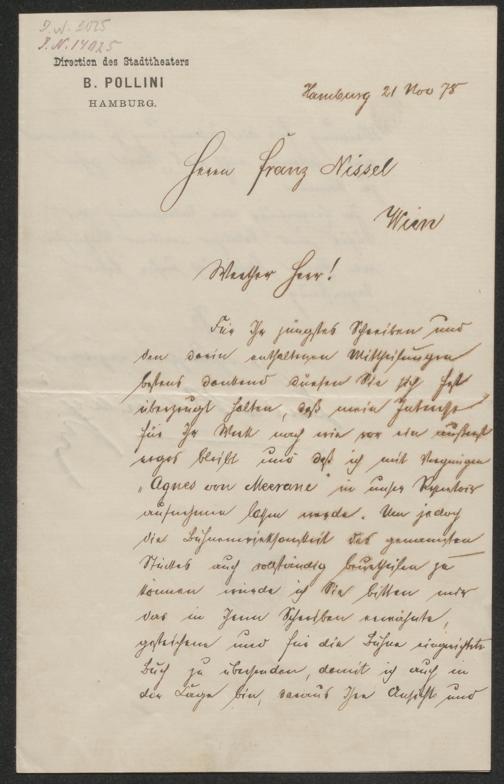 J.N. 14025
Direction des Stadttheaters
B. POLLINI
HAMBURG.
Hamburg 21 Nov 78
Herrn Franz Nissel
Wien
Werther Herr!
Für Ihr jüngstes Schreiben und
den darin enthaltenen Mittheilungen
bestens dankend dürfen Sie sich fest
überzeugt halten, daß mein Interesse
für Ihr Werk nach wie vor ein äußerst
reges bleibt und daß ich mit Vergnügen
„Agnes von Meerane" in unser Repertoir
aufnehmen lassen werde. Um jedoch
die Bühnenwirksamkeit des genannten
Stückes auch vollständig beurtheilen zu
können würde ich Sie bitten mir
das in Ihrem Schreiben erwähnte,
gestrichene und für die Bühne eingerichtete
Buch zu übersenden, damit ich auch in
der Lage bin, daraus Ihre Ansicht und